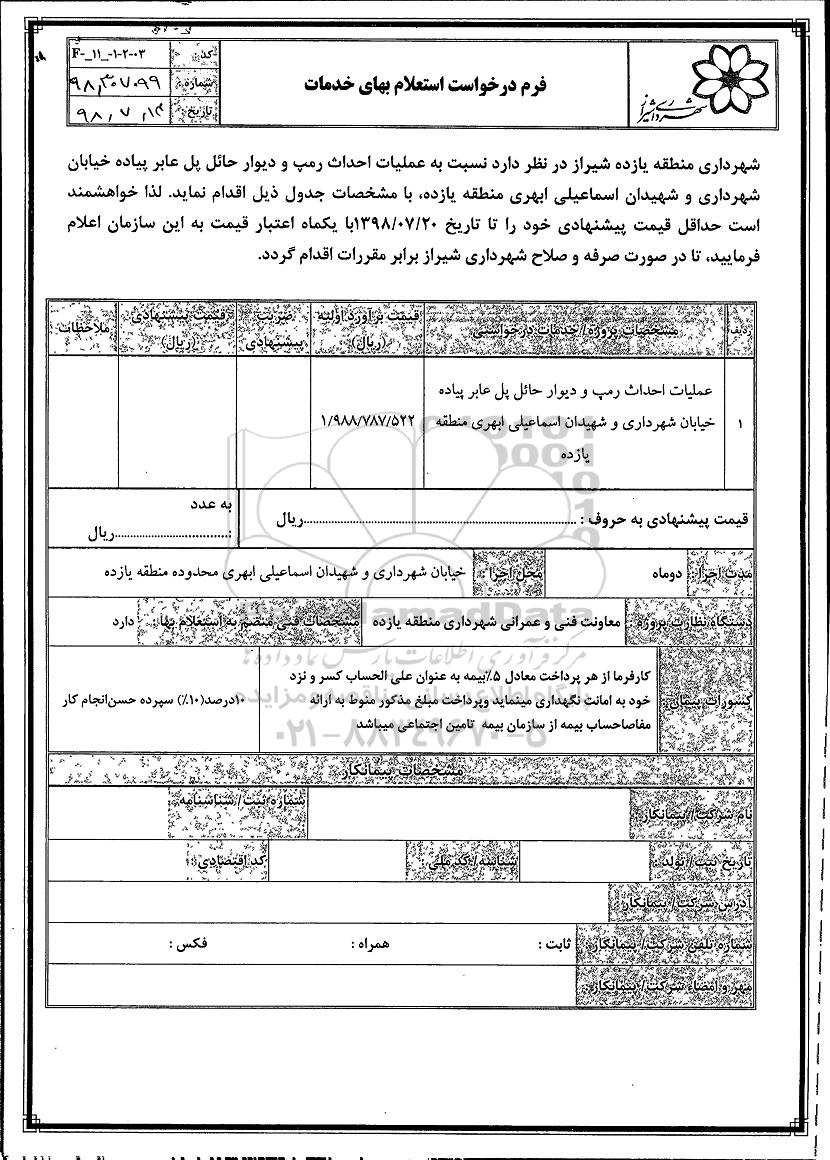 کد: F-_11_-1-2-03
شماره: ۹۸٫۳۰۷۰۹۹
تاریخ: ۹۸٫۷٫۱۳
فرم درخواست استعلام بهای خدمات
شهرداری شیراز
شهرداری منطقه یازده شیراز در نظر دارد نسبت به عملیات احداث رمپ و دیوار حائل پل عابر پیاده خیابان
شهرداری و شهیدان اسماعیلی ابهری منطقه یازده، با مشخصات جدول ذیل اقدام نماید. لذا خواهشمند
است حداقل قیمت پیشنهادی خود را تا تاریخ ۱۳۹۸/۰۷/۲۰با یکماه اعتبار قیمت به این سازمان اعلام
فرمایید، تا در صورت صرفه و صلاح شهرداری شیراز برابر مقررات اقدام گردد.
ردیف مشخصات پروژه/ خدمات درخواستی قیمت برآورد اولیه (ریال) ضریب پیشنهادی قیمت پیشنهادی (ریال) ملاحظات
عملیات احداث رمپ و دیوار حائل پل عابر پیاده
۱ خیابان شهرداری و شهیدان اسماعیلی ابهری منطقه ۱/۹۸۸/۷۸۷/۵۲۲
یازده
قیمت پیشنهادی به حروف : ......................................................ریال
به عدد
:................................ریال
مدت اجرا : دوماه محل اجرا : خیابان شهرداری و شهیدان اسماعیلی ابهری محدوده منطقه یازده
دستگاه نظارت پروژه : معاونت فنی و عمرانی شهرداری منطقه یازده مشخصات فنی منضم به استعلام بها : دارد
کسورات پیمان :
کارفرما از هر پرداخت معادل ۵٪بیمه به عنوان علی الحساب کسر و نزد
خود به امانت نگهداری مینماید وپرداخت مبلغ مذکور منوط به ارائه
مفاصاحساب بیمه از سازمان بیمه تامین اجتماعی میباشد
۱۰درصد(۱۰٪) سپرده حسن‌انجام کار
مشخصات پیمانکار
نام شرکت/ پیمانکار: شماره ثبت/ شناسنامه:
تاریخ ثبت/ تولد : شناسه/ کد ملی : کد اقتصادی :
آدرس شرکت/ پیمانکار :
شماره تلفن شرکت/ پیمانکار : ثابت : همراه : فکس :
مهر و امضاء شرکت/ پیمانکار :
ParsNamadData
مرکز فرآوری اطلاعات پارس نماد داده ها
پایگاه اطلاع رسانی مناقصه و مزایده
۰۲۱-۸۸۳۴۹۶۷۰-۵